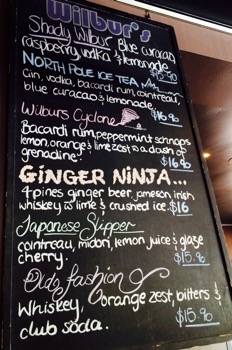 Wilbur's
Shady Wilbur Blue curacao,
raspberry, vodka & lemonade
$15.90
NORTH POLE ICE TEA
Gin, vodka, bacardi rum, cointreau,
blue curacao & lemonade.
$16.90
Wilburs Cyclone
Bacardi rum, peppermint schnapps
lemon, orange & lime zest & a dash of
grenadine.
$16.90
GINGER NINJA...
4 pines ginger beer, jameson irish
whiskey & lime & crushed ice. $16
Japanese Slipper
cointreau, midori, lemon juice & glaze
cherry.
$15.90
Old fashion
Whiskey, orange zest, bitters &
club soda.
$15.90